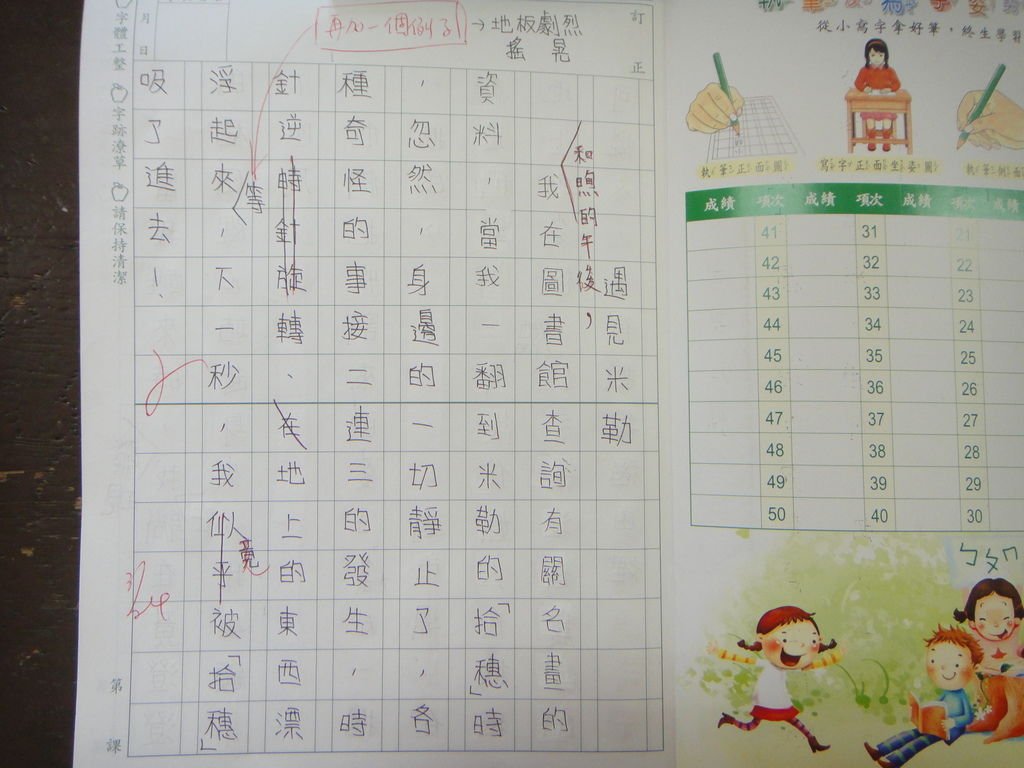 訂正
再加一個例子→地板劇烈
搖晃
遇見米勒
和煦的午後，
我在圖書館查詢有關名畫的
資料，當我一翻到米勒的「拾穗」時
，忽然，身邊的一切靜止了，各
種奇怪的事接二連三的發生，時
針逆時針旋轉、在地上的東西漂
等
浮起來，下一秒，我似乎被「拾穗」
竟
吸了進去！
3/24
月
日
字體工整 字跡潦草 請保持清潔
第
課
從小寫字拿好筆，終生學習
執筆正面圖
寫字正面坐姿圖
執筆側面
成績 項次 成績 項次 成績 成績
41 31 21
42 32 22
43 33 23
44 34 24
45 35 25
46 36 26
47 37 27
48 38 28
49 39 29
50 40 30
ㄅㄆㄇ